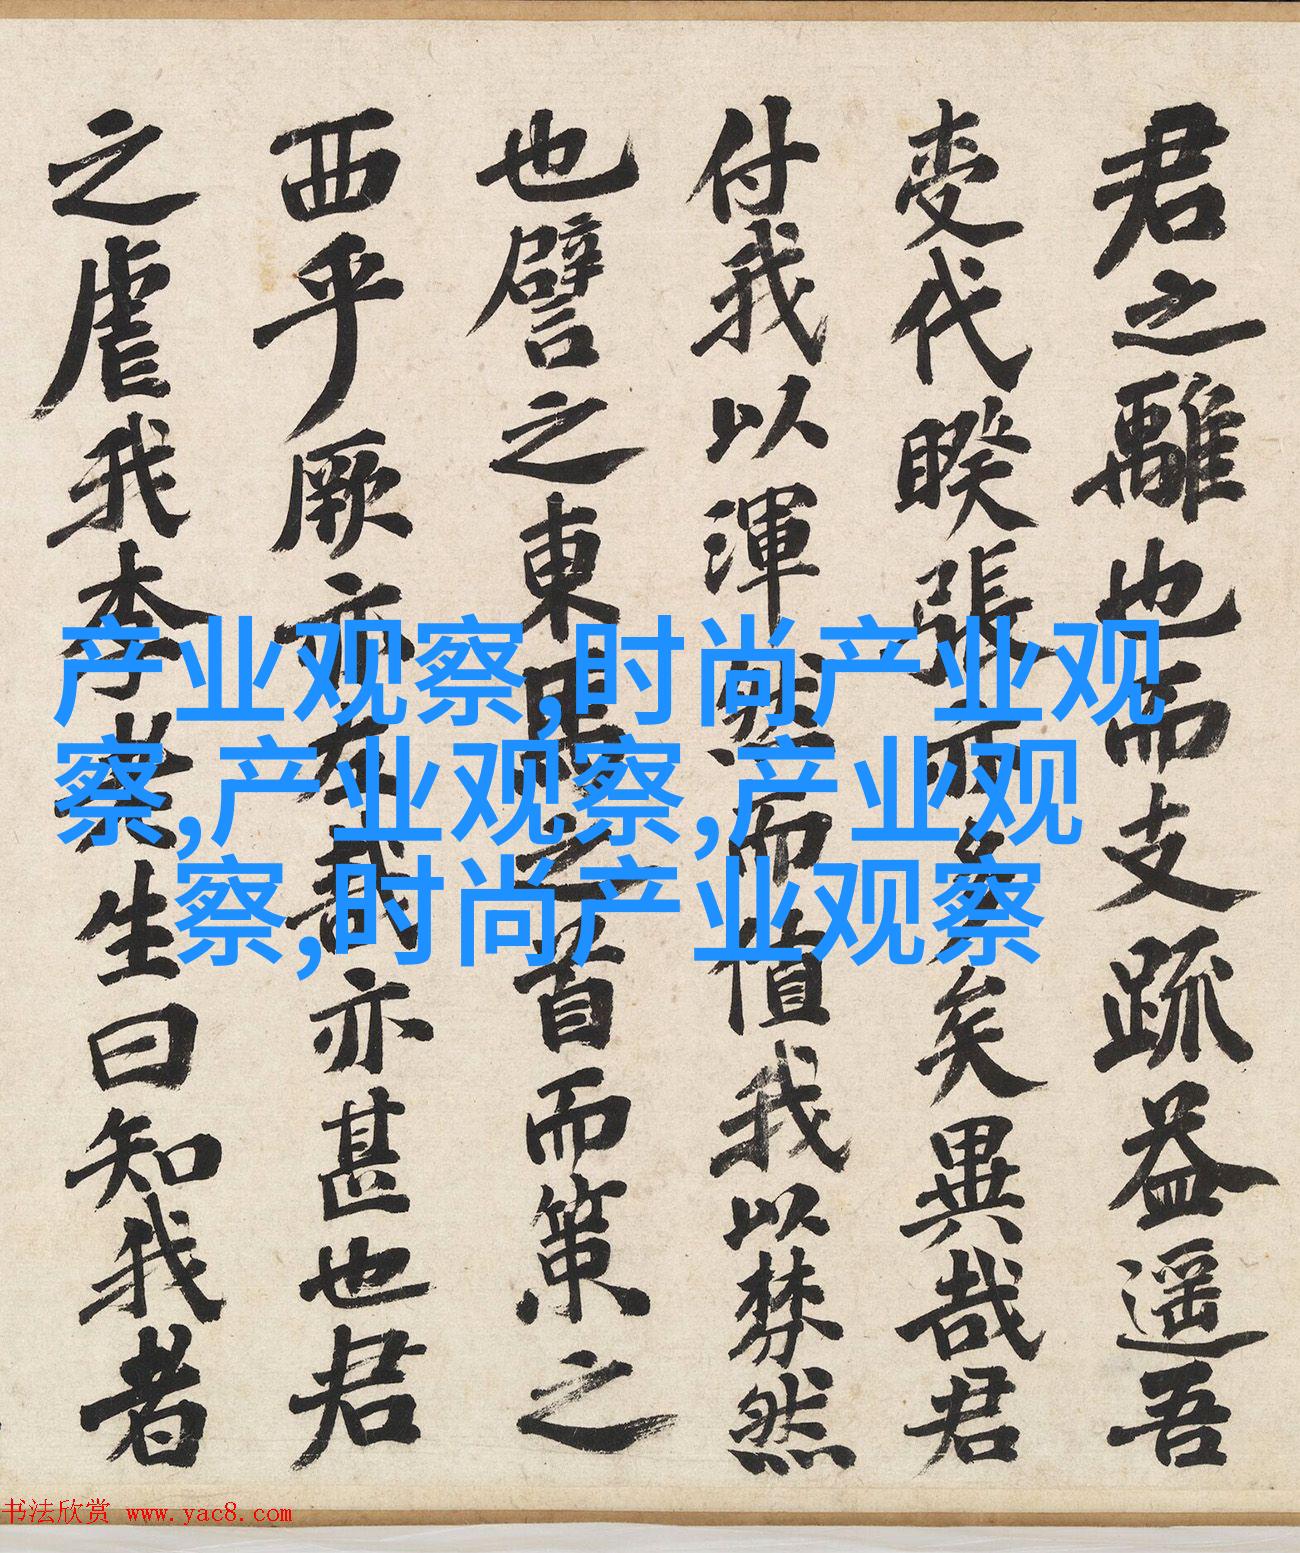 君之離也而支疏益遥吾
变代睽張
矣異哉君
付我以渾然而值我以棼然
也譬之東
之首而策之
西乎厥亦
哉亦甚也君
之虐我李
生曰知我者
产业观察,时尚产业观
察,产业观察,产业观
察,时尚产业观察
书法欣赏 www.yac8.com